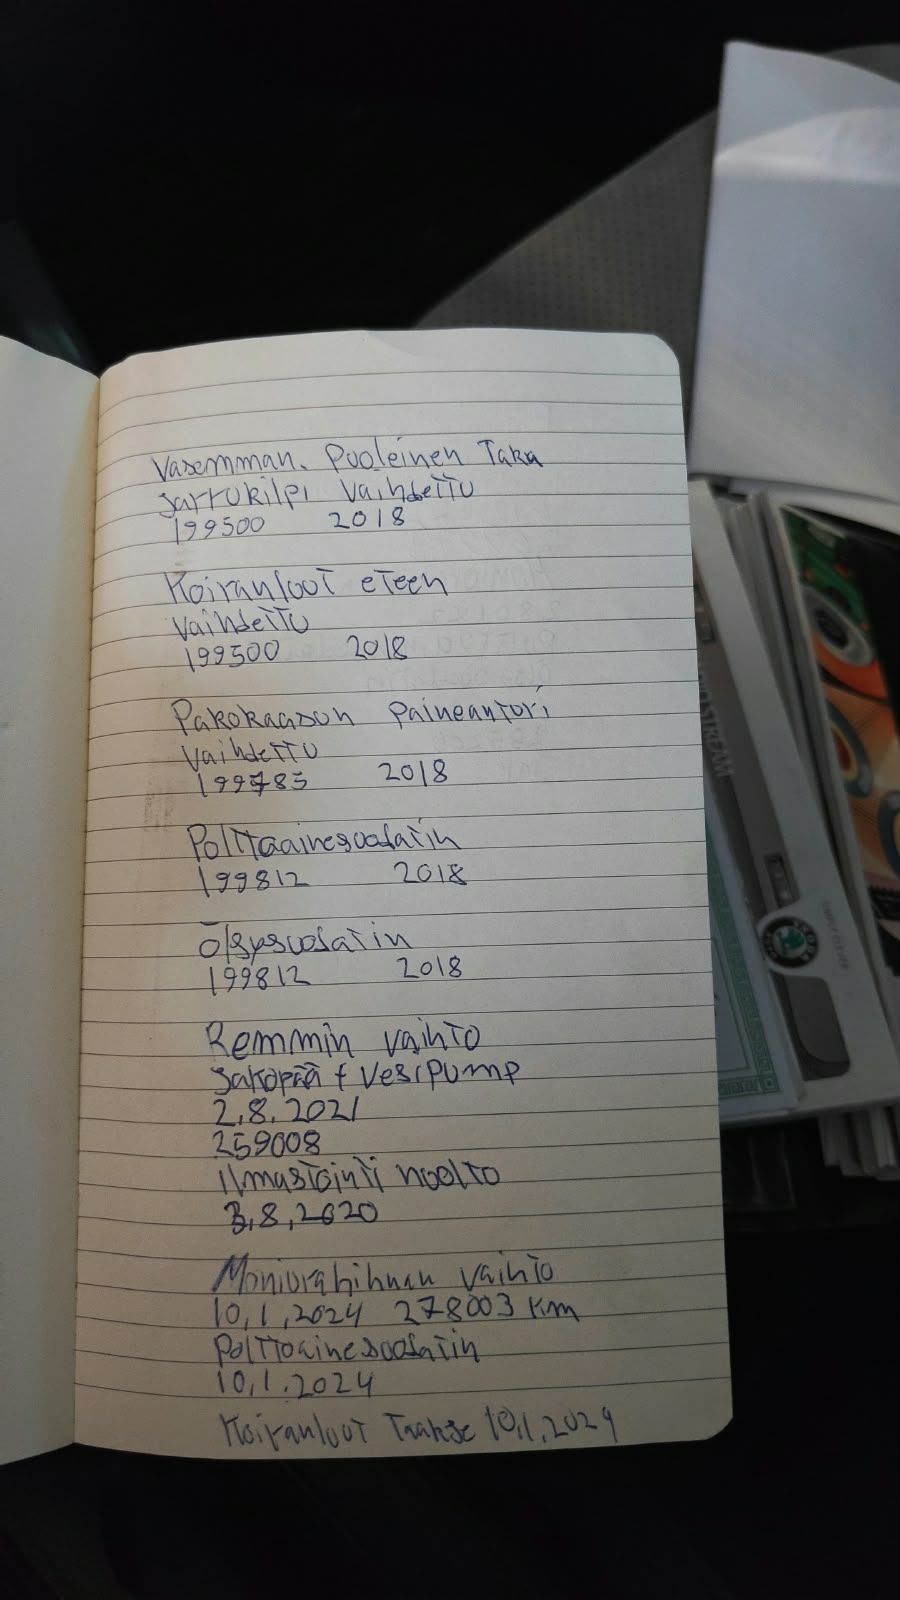 Vasemman. Puoleinen Taka
Jarrukilpi Vaihdettu
199500 2018
Koiranluut eteen
Vaihdettu
199500 2018
Pakokaasun Paineanturi
Vaihdettu
199785 2018
Polttoainesuodatin
199812 2018
Öljysuodatin
199812 2018
Remmin vaihto
Jakopää + Vesipump
2.8.2021
259008
Ilmastointi huolto
3.8.2020
Moniurahihnan vaihto
10.1.2024 278003 Km
Polttoainesuodatin
10.1.2024
Koiranluut Taakse 10.1.2024
SKODA